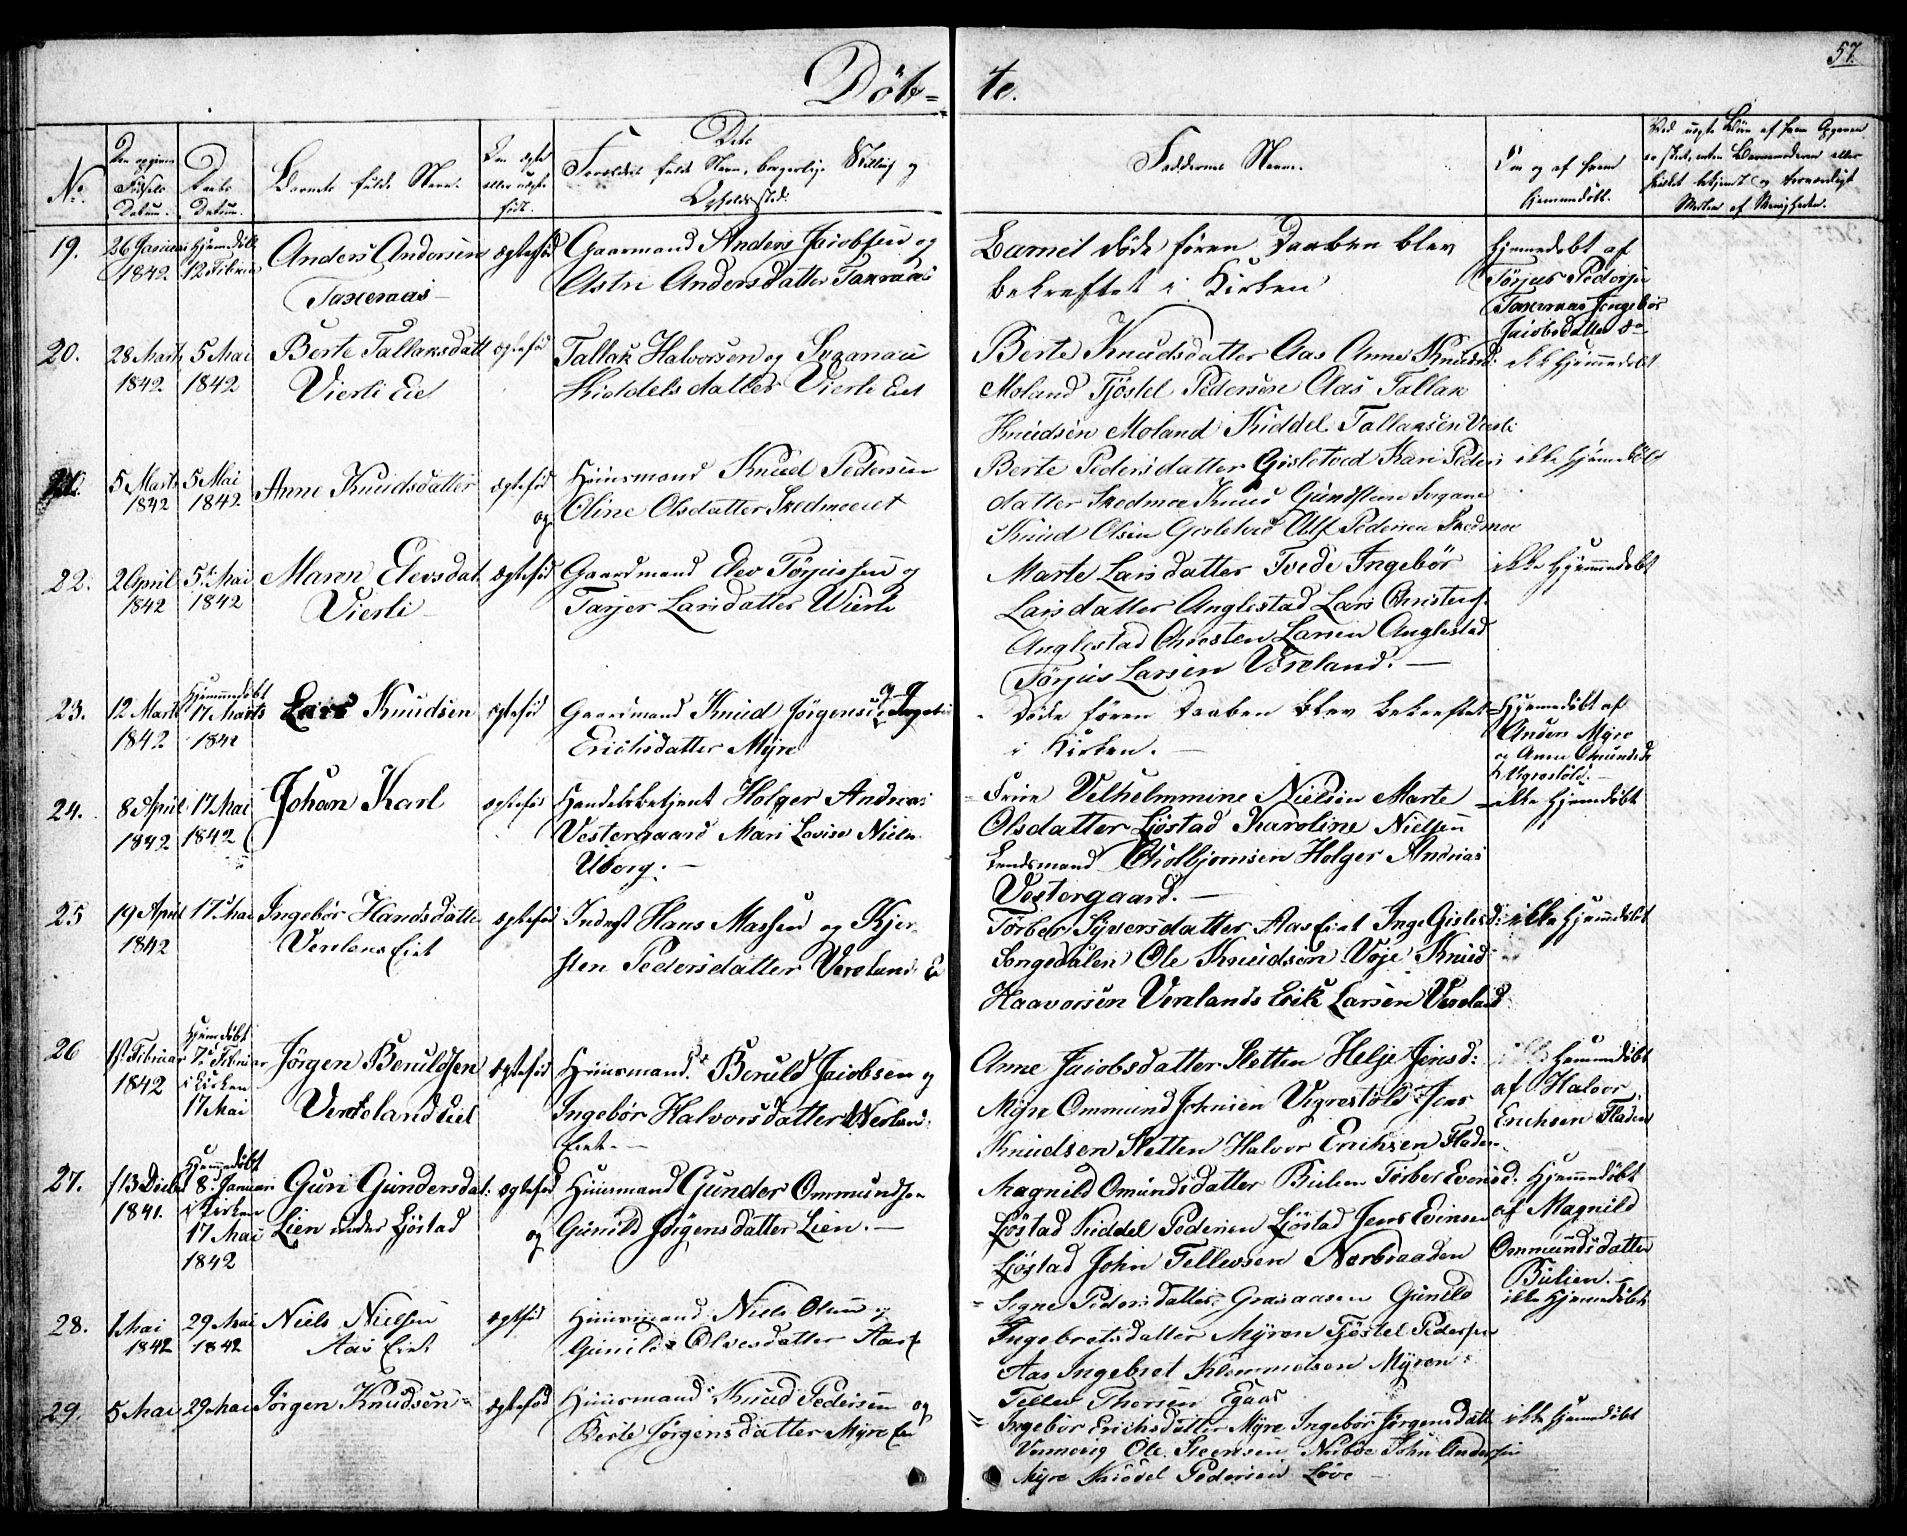 57.
Döb= te.
No.
Den opgivne Födsels Datum.
Daabs Datum.
Barnets fulde Navn.
Om ægte eller uægte født.
Dets Forældres fulde Navn, borgerlige Stilling og Opholdssted.
Faddernes Navne.
Om og af hvem hjemmedöbt.
19. 26 Januar 1842 Hjemmedöbt 12 Februar
Anders Andersen Taxeraas
ægtefød
Gaarmand Anders Jacobsen og
Astri Andersdatter Taxeraas
Barnet döde fören Daaben blev
bekræftet i Kirken
Hjemmedöbt af
Törjus Pedersen
Taxeraas Ingebör
Jacobsdatter do
20. 28 Marts 1842 5 Mai 1842
Berte Tallaksdatt
Vierli Eie
ægtefød
Tallak Halvorsen og Suzanau
Kiddelsdatter Vierli Eiet
Berte Knudsdatter Aas Anne Knudsd:
Moland Tjöstel Pedersen Aas Tallak
Knudsen Moland Kiddel Tallaksen Vierli
ikk hjemmedobt
21. 5 Marts 1842 5 Mai 1842
Anne Knudsdatter
ægtefød og
Huusmand Knud Pedersen
Oline Olsdatter Skedmoeiet
Berte Pedersdatter Gislestad Kari Peders
datter Skedmoe Knud Gundsteen
Knud Olsen Gislestad Alf Pedersen Skedmoe
ikke hjemmedöbt
22. 2 April 1842 5 Mai 1842
Maren Elevsdat
Vierli
ægtefød
Gaardmand Elev Törjussen og
Tarjer Larsdatter Wierli
Marte Larsdatter Tvede Ingebör
Larsdatter Anglestad Lars Christens.
Anglestad Christen Larsen Anglestad
Törjus Larsen Vereland.
ikke hjemmedobt
23. 12 Marts 1842 Hjemmedöbt 17 Marts 1842
Lars Knudsen
ægtefød
Gaardmand Knud Jörgensen og Ingebör
Erichsdatter Myre
Döde fören Daaben blev bekræftet
i Kirken.
Hjemmedöbt af
Anders Myre
og Anne Omundsd
Vigrestöld.
24. 8 April 1842 17 Mai 1842
Johan Karl
ægtefød
Handelsbetjent Holger Andreas
Vestergaard Mari Lovise Niels
Uborg.
Fruе Velhelmmine Nielsen Marte
Olsdatter Ljöstad Karoline Nielsen
Lendsmand Tholbjornsen Holger Andreas
Vestergaard.
ikke hjemdöbt
25 19 April 1842 17 Mai
Ingebör Hansdatte
Verelans Eiet
ægtefød
Inderst Hans Massen og Kjer
sten Pedersdatter Vereland E
Törber Syversdatter Aas Eiet Inge Gislesd:
Songedalen Ole Knudsen Voje Knud
Haavorsen Verelands Erik Larsen Vereland
ikke hjemmedobt
26 1 Februar 1842 Hjemdöbt 7 Februar i Kirken 17 Mai
Jörgen Beruldsen
Verelandseiet
ægtefød
Huusmand Beruld Jacobsen og
Ingebör Halvorsdatter Werland
Eiet
Anne Jacobsdatter Sletten Helje Jensd:
Myre Ommund Johnsen Vigrestöld Jens
Knudsen Sletten Halvor Erichsen Fladen
hjemmdöbt
af Halvor
Erichsen Fladen
27. 13 Decbr 1841. Hjemmedöbt 8 Januar i Kirken 17 Mai 1842
Guri Gundersdat:
Lien under Ljöstad
ægtefød og
Huusmand Gunder Ommundsen
Gunild Jörgensdatter Lien.
Magnild Omundsdatter Bulien Torber Evensd:
Ljöstad Kiddel Pedersen Ljöstad Jens Evensen
Ljöstad John Tellevsen Norbraaden
Hjemmedöbt
af Magnild
Ommundsdatter
Bulien.
28. 1 Mai 1842 29 Mai 1842
Niels Nielsen
Aas Eiet
ægtefød
Huusmand Niels Olsen og
Gunild Olvesdatter Aas
Signe Pedersdatter Graaaasen Gunild
Ingebretsdatter Myren Tjöstel Pedersen
Aas Ingebret Klemmetsen Myren
Tellev Thorsen Egaas
ikke hjemmedöbt
29. 5 Mai 29 Mai
Jörgen Knudsen
ægtefød
Huusmand Knud Pedersen og
Berte Jörgensdatter Myre Eie
Ingebör Erichsdatter Myre Ingebör Jörgensdatt
Vennevig Ole Steensen Norböe John Andersen
Myre Kiddel Pedersen Löve
ikke hjemdöbt